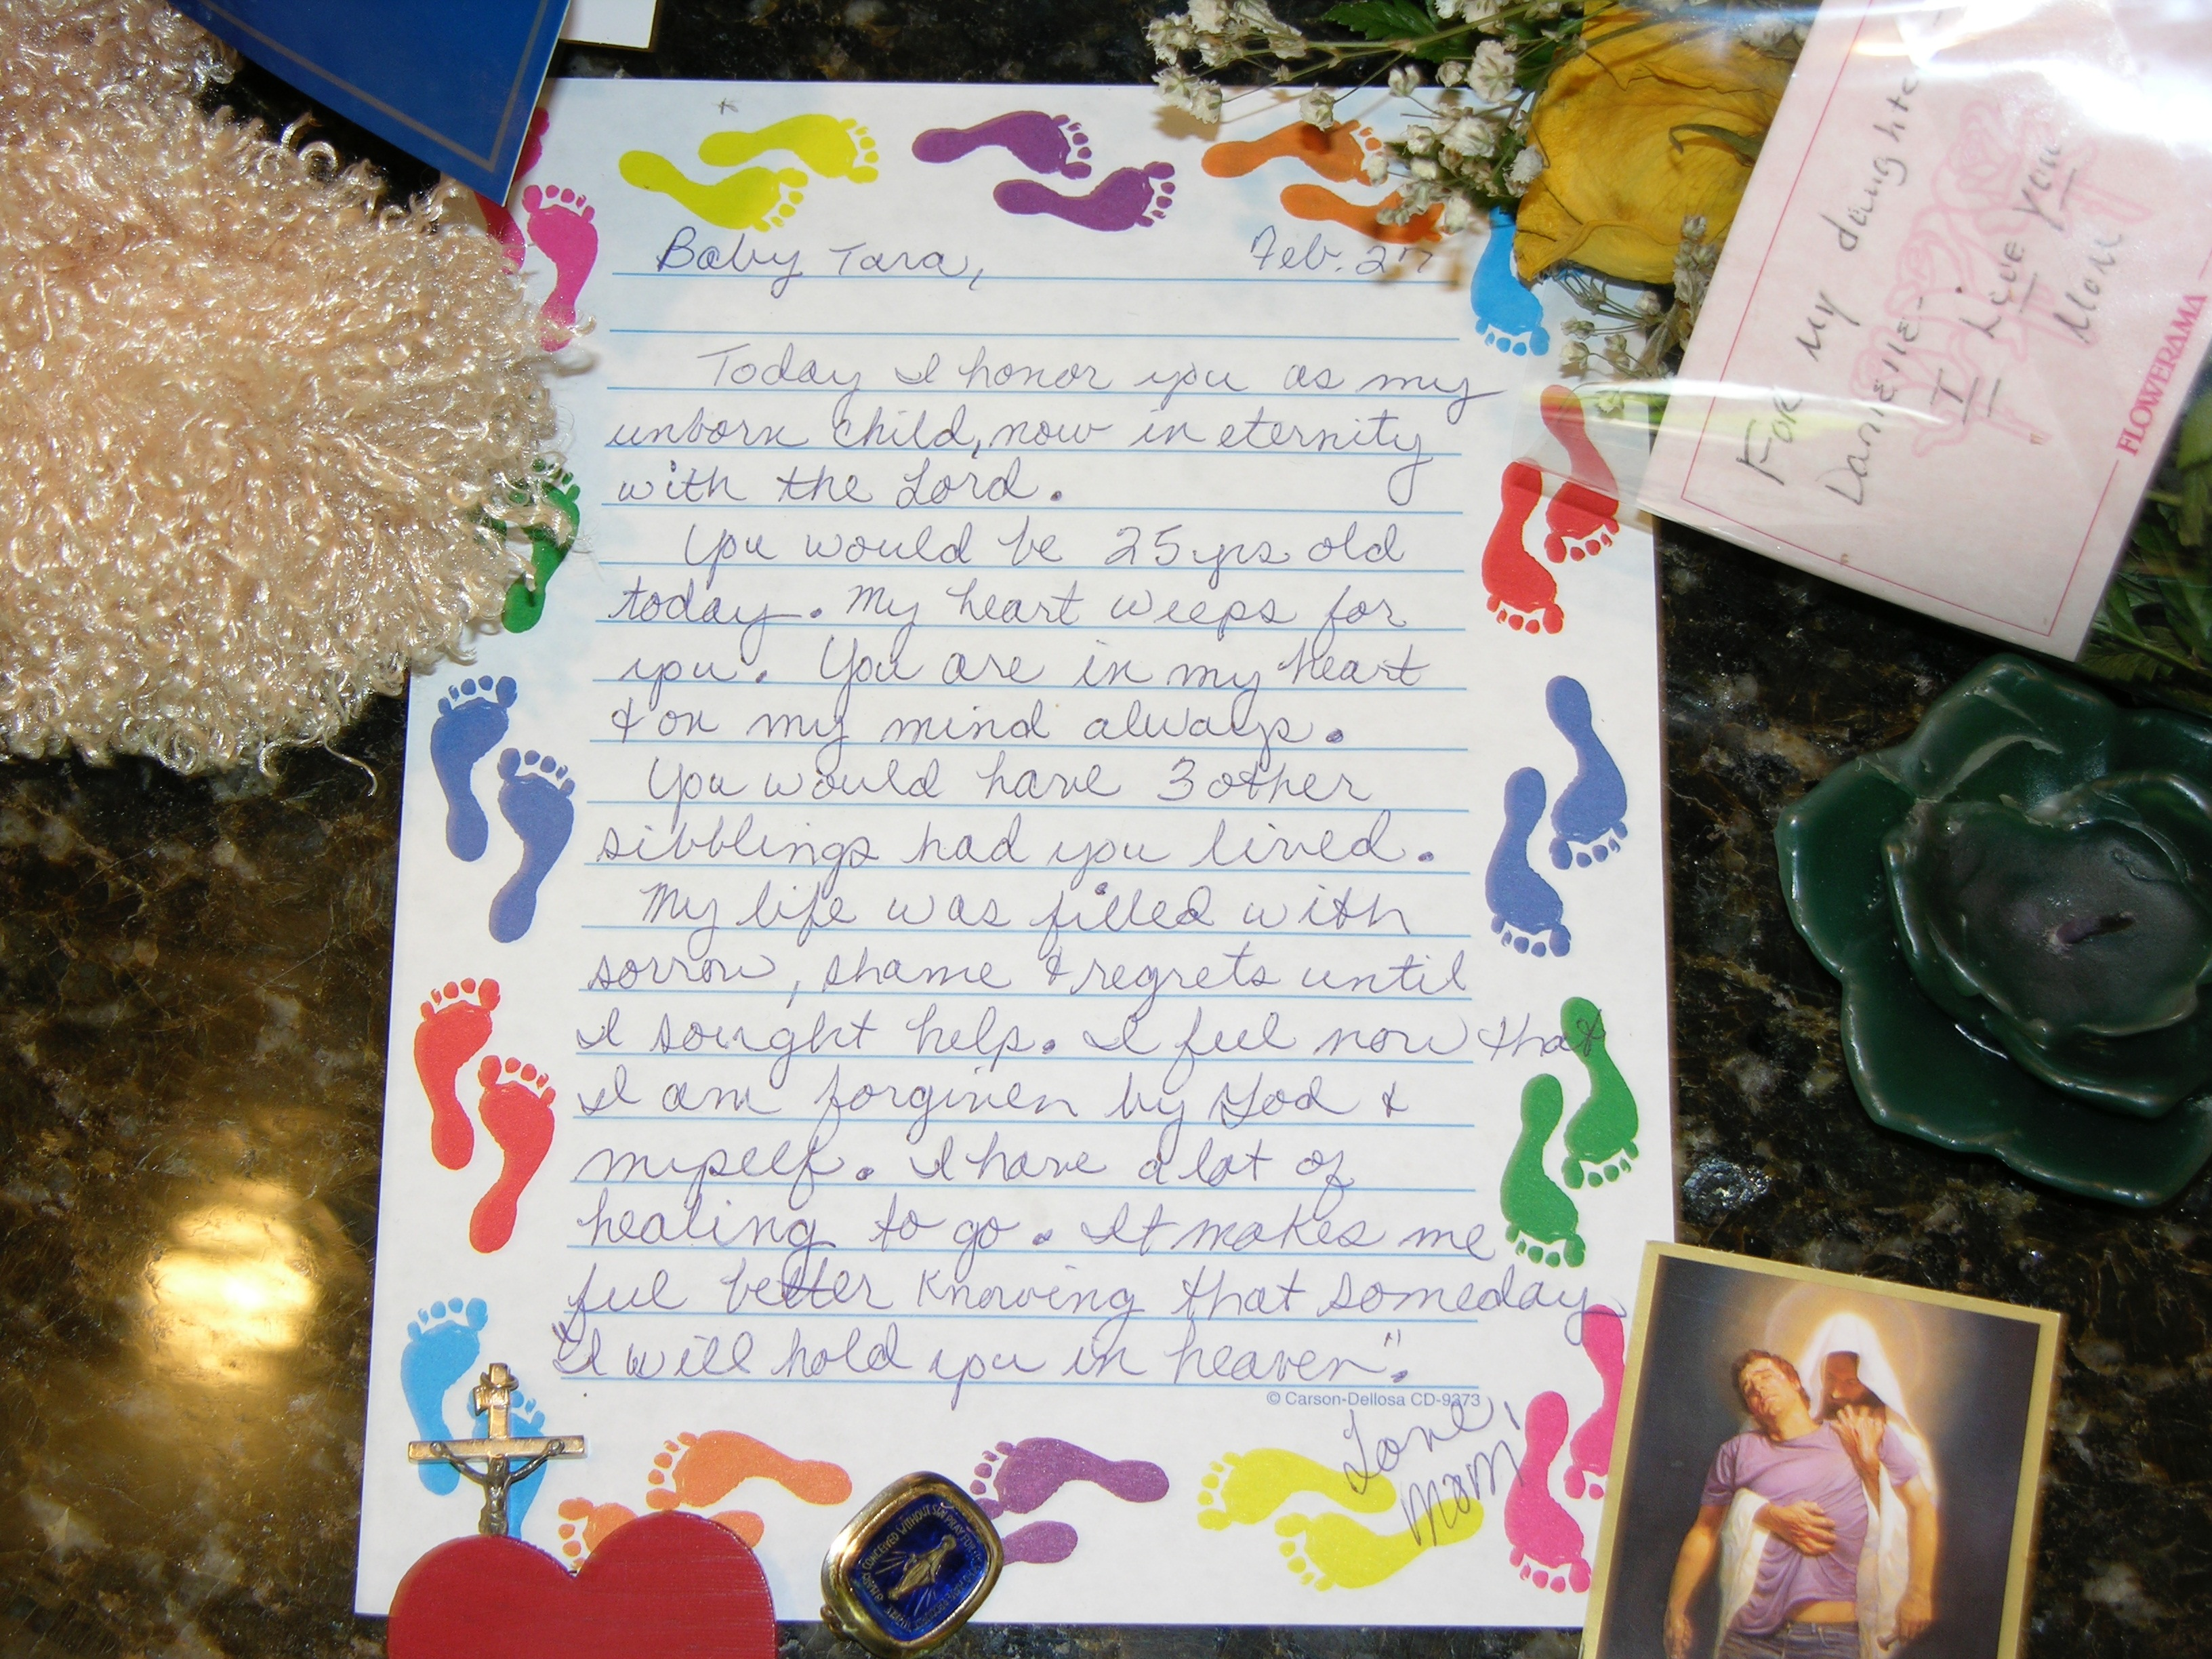 Baby Tara, Feb. 27
Today I honor you as my
unborn child, now in eternity
with the Lord.
You would be 25 yrs old
today. My heart weeps for
you. You are in my heart
& on my mind always.
You would have 3 other
sibblings had you lived.
My life was filled with
sorrow, shame & regrets until
I sought help. I feel now that
I am forgiven by God &
myself. I have a lot of
healing to go. It makes me
feel better knowing that someday
"I will hold you in heaven".
© Carson-Dellosa CD-9373
Love,
Mom
For my daughter
Danielle-
I Love you
Mom
FLOWERAMA
CONCEIVED WITHOUT SIN PRAY FOR